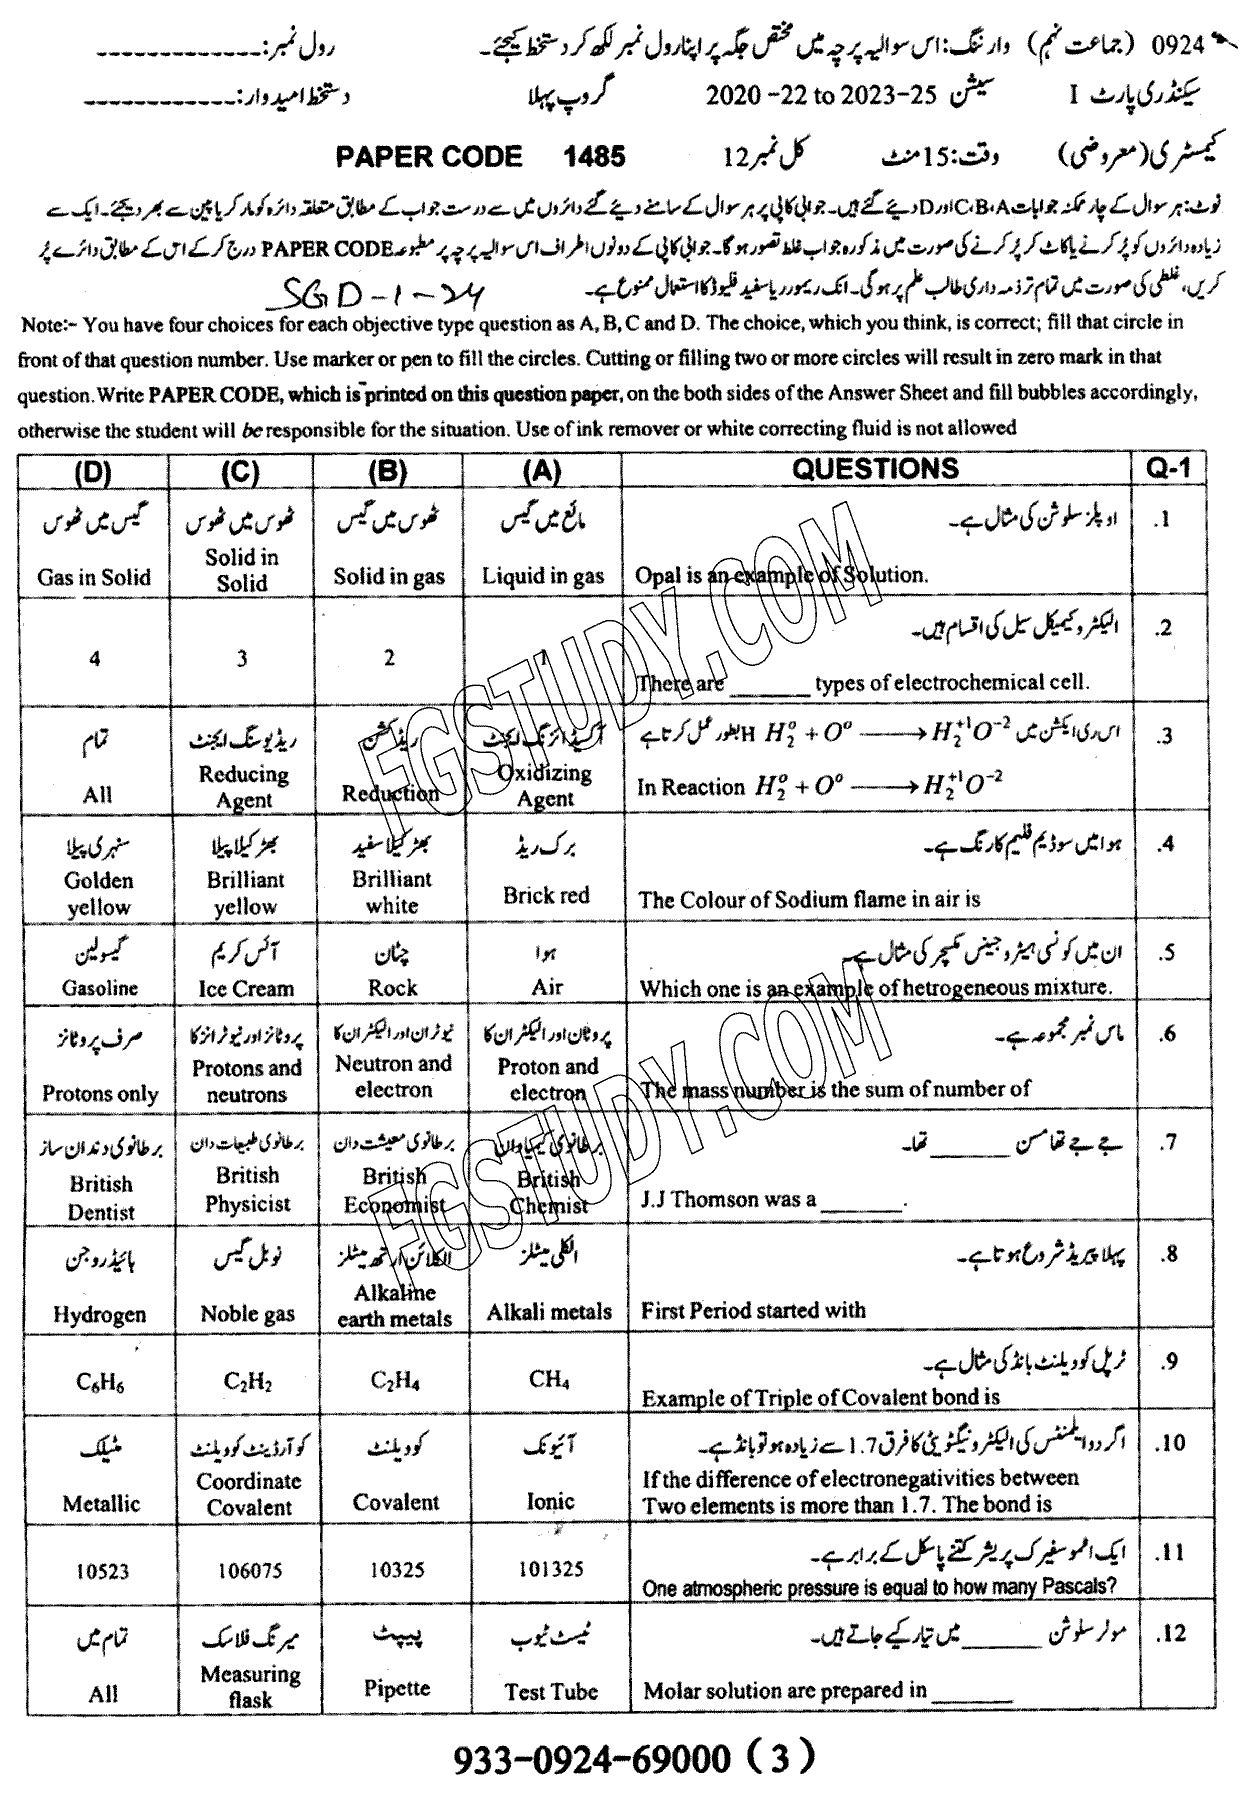 0924 (جماعت نہم) وارننگ: اس سوالیہ پرچہ میں مختص جگہ پر اپنا رول نمبر لکھ کر دستخط کیجئے۔ رول نمبر: -------------
سیکنڈری پارٹ I سیشن 2020 -22 to 2023-25 گروپ پہلا دستخط امیدوار: ------------
کیمسٹری (معروضی) وقت: 15 منٹ کل نمبر 12 PAPER CODE 1485
نوٹ: ہر سوال کے چار ممکنہ جوابات C،B،A اور D دیئے گئے ہیں۔ جوابی کاپی پر ہر سوال کے سامنے دیئے گئے دائروں میں سے درست جواب کے مطابق متعلقہ دائرہ کو مارکر یا پین سے بھر دیجئے۔ ایک سے
زیادہ دائروں کو پُر کرنے یا کاٹ کر پُر کرنے کی صورت میں مذکورہ جواب غلط تصور ہوگا۔ جوابی کاپی کے دونوں اطراف اس سوالیہ پرچہ پر مطبوعہ PAPER CODE درج کر کے اس کے مطابق دائرے پُر
کریں، غلطی کی صورت میں تمام تر ذمہ داری طالب علم پر ہوگی۔ انک ریموور یا سفید فلیوڈ کا استعمال ممنوع ہے۔
SGD-1-24
Note:- You have four choices for each objective type question as A, B, C and D. The choice, which you think, is correct; fill that circle in
front of that question number. Use marker or pen to fill the circles. Cutting or filling two or more circles will result in zero mark in that
question. Write PAPER CODE, which is printed on this question paper, on the both sides of the Answer Sheet and fill bubbles accordingly,
otherwise the student will be responsible for the situation. Use of ink remover or white correcting fluid is not allowed
(D) (C) (B) (A) QUESTIONS Q-1
گیس میں ٹھوس ٹھوس میں ٹھوس ٹھوس میں گیس مائع میں گیس اوپلز سلوشن کی مثال ہے۔ .1
Gas in Solid Solid in Solid Solid in gas Liquid in gas Opal is an example of Solution.
الیکٹرو کیمیکل سیل کی اقسام ہیں۔ .2
4 3 2 1 There are _______ types of electrochemical cell.
تمام ریڈیوسنگ ایجنٹ ریڈکشن آکسیڈائزنگ ایجنٹ اس ری ایکشن میں H₂⁰ + O⁰ ⟶ H₂⁺¹O⁻² H بطور عمل کرتا ہے .3
All Reducing Agent Reduction Oxidizing Agent In Reaction H₂⁰ + O⁰ ⟶ H₂⁺¹O⁻²
سنہری پیلا بھڑکیلا پیلا بھڑکیلا سفید برک ریڈ ہوا میں سوڈیم فلیم کا رنگ ہے۔ .4
Golden yellow Brilliant yellow Brilliant white Brick red The Colour of Sodium flame in air is
گیسولین آئس کریم چٹان ہوا ان میں کونسی ہیٹروجینس مکسچر کی مثال ہے۔ .5
Gasoline Ice Cream Rock Air Which one is an example of hetrogeneous mixture.
صرف پروٹانز پروٹانز اور نیوٹرانز کا نیوٹران اور الیکٹران کا پروٹان اور الیکٹران کا ماس نمبر مجموعہ ہے۔ .6
Protons only Protons and neutrons Neutron and electron Proton and electron The mass number is the sum of number of
برطانوی دندان ساز برطانوی طبیعات دان برطانوی معیشت دان برطانوی کیمیادان جے جے تھامسن _______ تھا۔ .7
British Dentist British Physicist British Economist British Chemist J.J Thomson was a _______.
ہائیڈروجن نوبل گیس الکلائن ارتھ میٹلز الکلی میٹلز پہلا پیریڈ شروع ہوتا ہے۔ .8
Hydrogen Noble gas Alkaline earth metals Alkali metals First Period started with
ٹرپل کوویلنٹ بانڈ کی مثال ہے۔ .9
C₆H₆ C₂H₂ C₂H₄ CH₄ Example of Triple of Covalent bond is
میٹلک کوآرڈینٹ کوویلنٹ کوویلنٹ آئیونک اگر دو ایلمنٹس کی الیکٹرونیگٹویٹی کا فرق 1.7 سے زیادہ ہو تو بانڈ ہے۔ .10
Metallic Coordinate Covalent Covalent Ionic If the difference of electronegativities between
Two elements is more than 1.7. The bond is
ایک اٹموسفیرک پریشر کتنے پاسکل کے برابر ہے۔ .11
10523 106075 10325 101325 One atmospheric pressure is equal to how many Pascals?
تمام میں میرنگ فلاسک پیپٹ ٹیسٹ ٹیوب مولر سلوشن _______ میں تیار کیے جاتے ہیں۔ .12
All Measuring flask Pipette Test Tube Molar solution are prepared in _______
933-0924-69000 ( 3 )
FGSTUDY.COM
FGSTUDY.COM